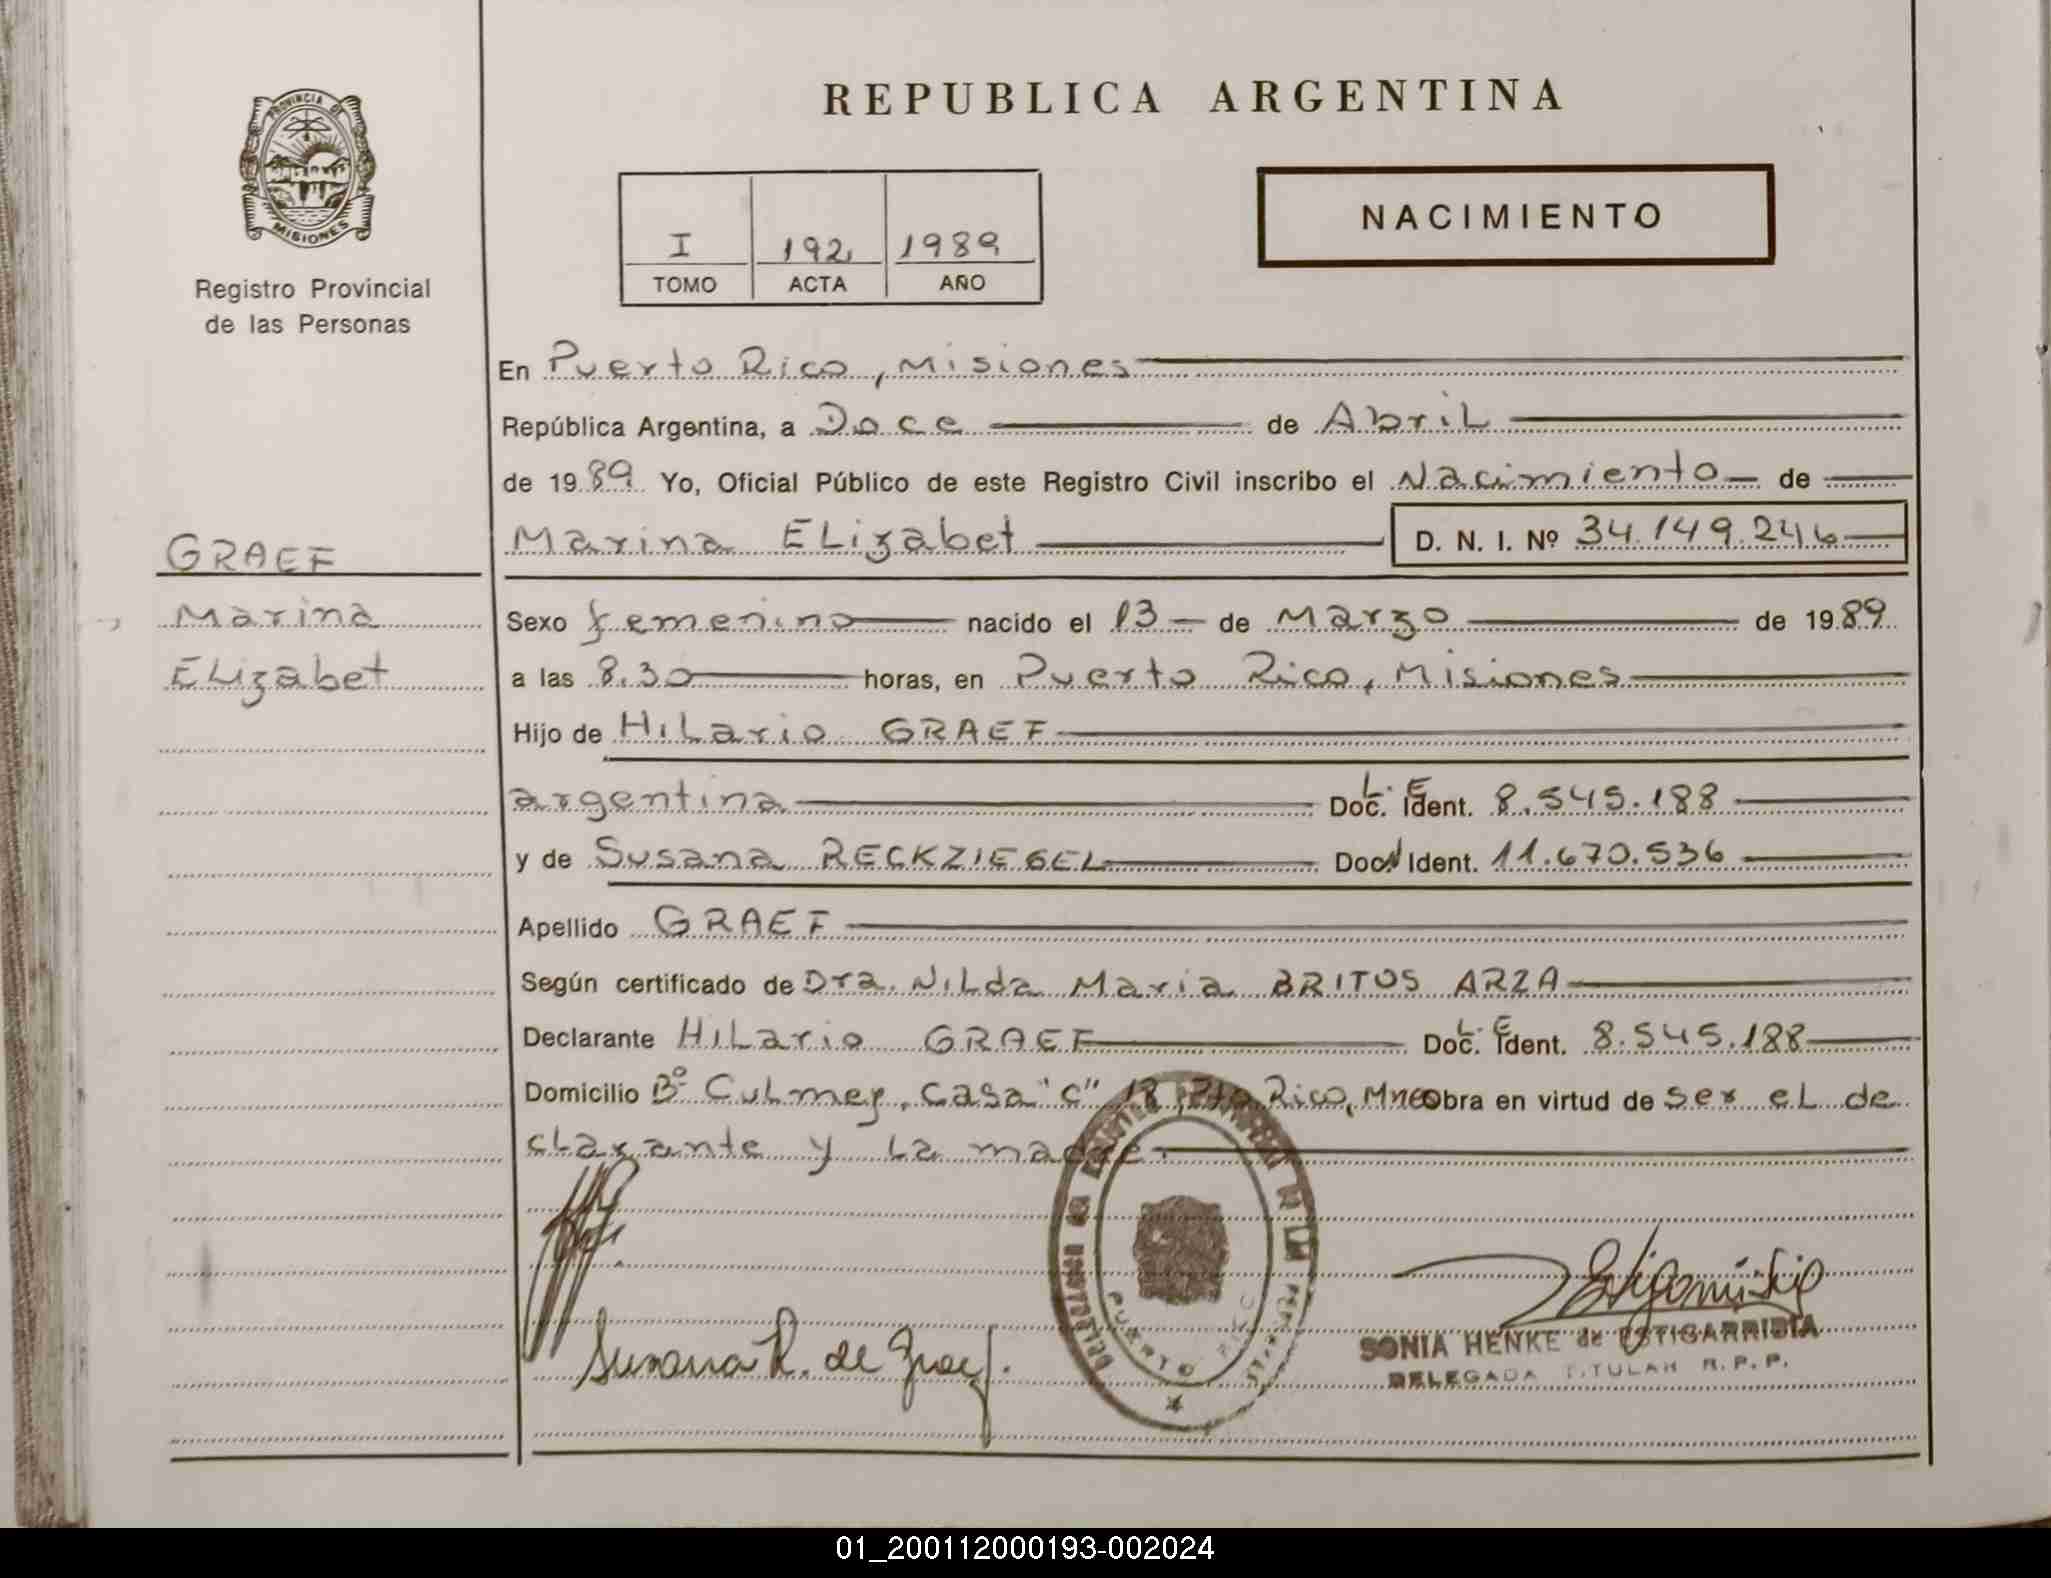 REPUBLICA ARGENTINA
PROVINCIA DE
MISIONES
Registro Provincial
de las Personas
I 192 1989
TOMO ACTA AÑO
NACIMIENTO
En Puerto Rico, Misiones
República Argentina, a Doce de Abril
de 1989 Yo, Oficial Público de este Registro Civil inscribo el Nacimiento de
Marina Elizabet D. N. I. Nº 34.149.246
GRAEF
Marina
Elizabet
Sexo femenino nacido el 13 de Marzo de 1989
a las 8.30 horas, en Puerto Rico, Misiones
Hijo de Hilario GRAEF
argentina L. E. Doc. Ident. 8.545.188
y de Susana RECKZIEGEL Doc. Ident. 11.670.536
Apellido GRAEF
Según certificado de Dra. Nilda Maria BRITOS ARZA
Declarante Hilario GRAEF L. E. Doc. Ident. 8.545.188
Domicilio Bº Culmey, Casa "C" 18, Pto Rico, Mnes Obra en virtud de ser el de
clarante y la madre.
PUERTO RICO
Susana R. de Graef.
SONIA HENKE de ESTIGARRIBIA
DELEGADA TITULAR R. P. P.
01_200112000193-002024